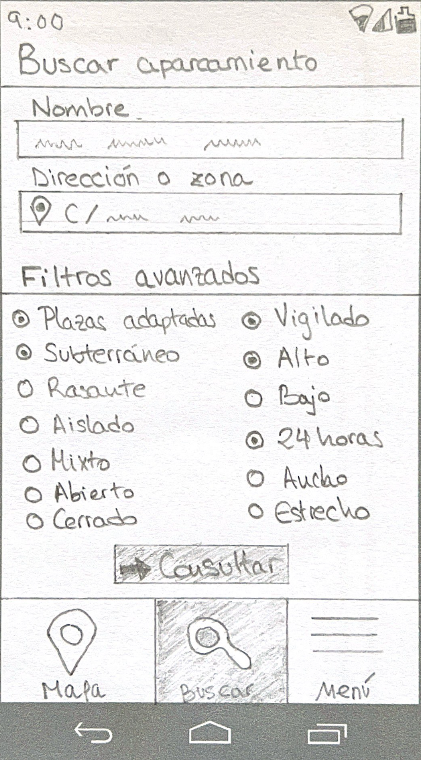 9:00
Buscar aparcamiento
Nombre
Dirección o zona
C/
Filtros avanzados
Plazas adaptadas
Subterráneo
Rasante
Aislado
Mixto
Abierto
Cerrado
Vigilado
Alto
Bajo
24 horas
Ancho
Estrecho
Consultar
Mapa
Buscar
Menú